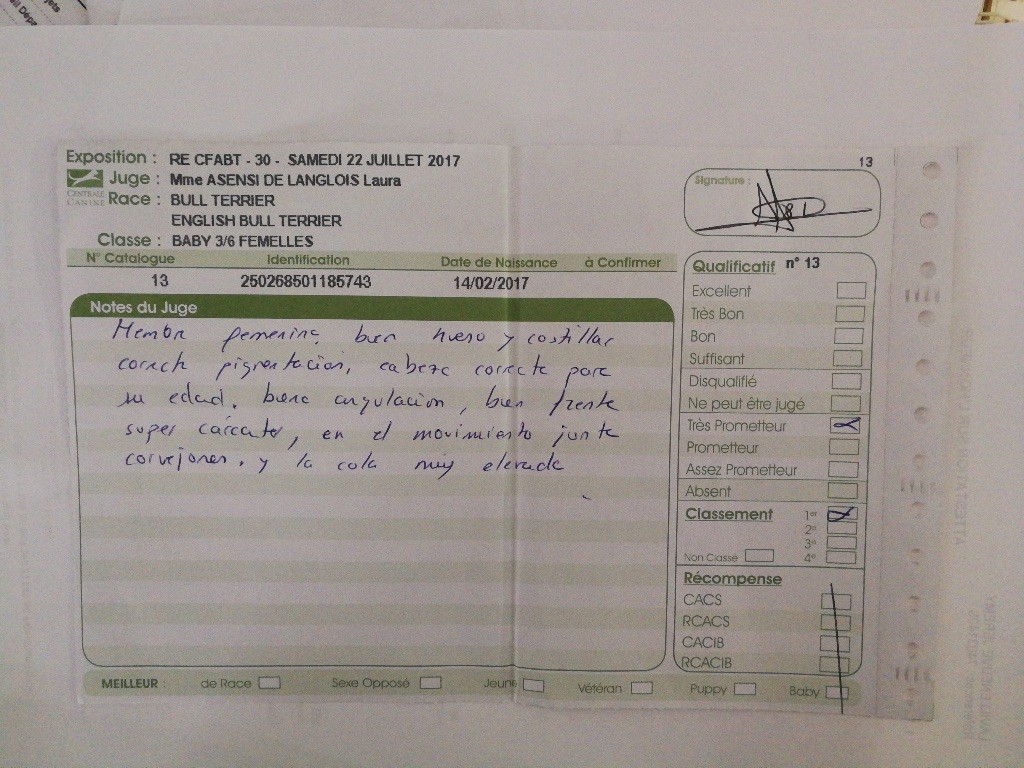 Exposition : RE CFABT - 30 - SAMEDI 22 JUILLET 2017
13
CENTRALE CANINE
Juge : Mme ASENSI DE LANGLOIS Laura
Signature :
Race : BULL TERRIER
ENGLISH BULL TERRIER
Classe : BABY 3/6 FEMELLES
N° Catalogue Identification Date de Naissance à Confirmer
13 250268501185743 14/02/2017
Notes du Juge
Hembra femenina, buen hueso y costillar
correcta pigmentacion, cabeza correcta para
su edad. buena angulacion, buen frente
super caracter, en el movimiento junta
corvejones. y la cola muy elevada
Qualificatif n° 13
Excellent
Très Bon
Bon
Suffisant
Disqualifié
Ne peut être jugé
Très Prometteur
Prometteur
Assez Prometteur
Absent
Classement 1er
2e
3e
Non Classé 4e
Récompense
CACS
RCACS
CACIB
RCACIB
MEILLEUR : de Race Sexe Opposé Jeune Vétéran Puppy Baby